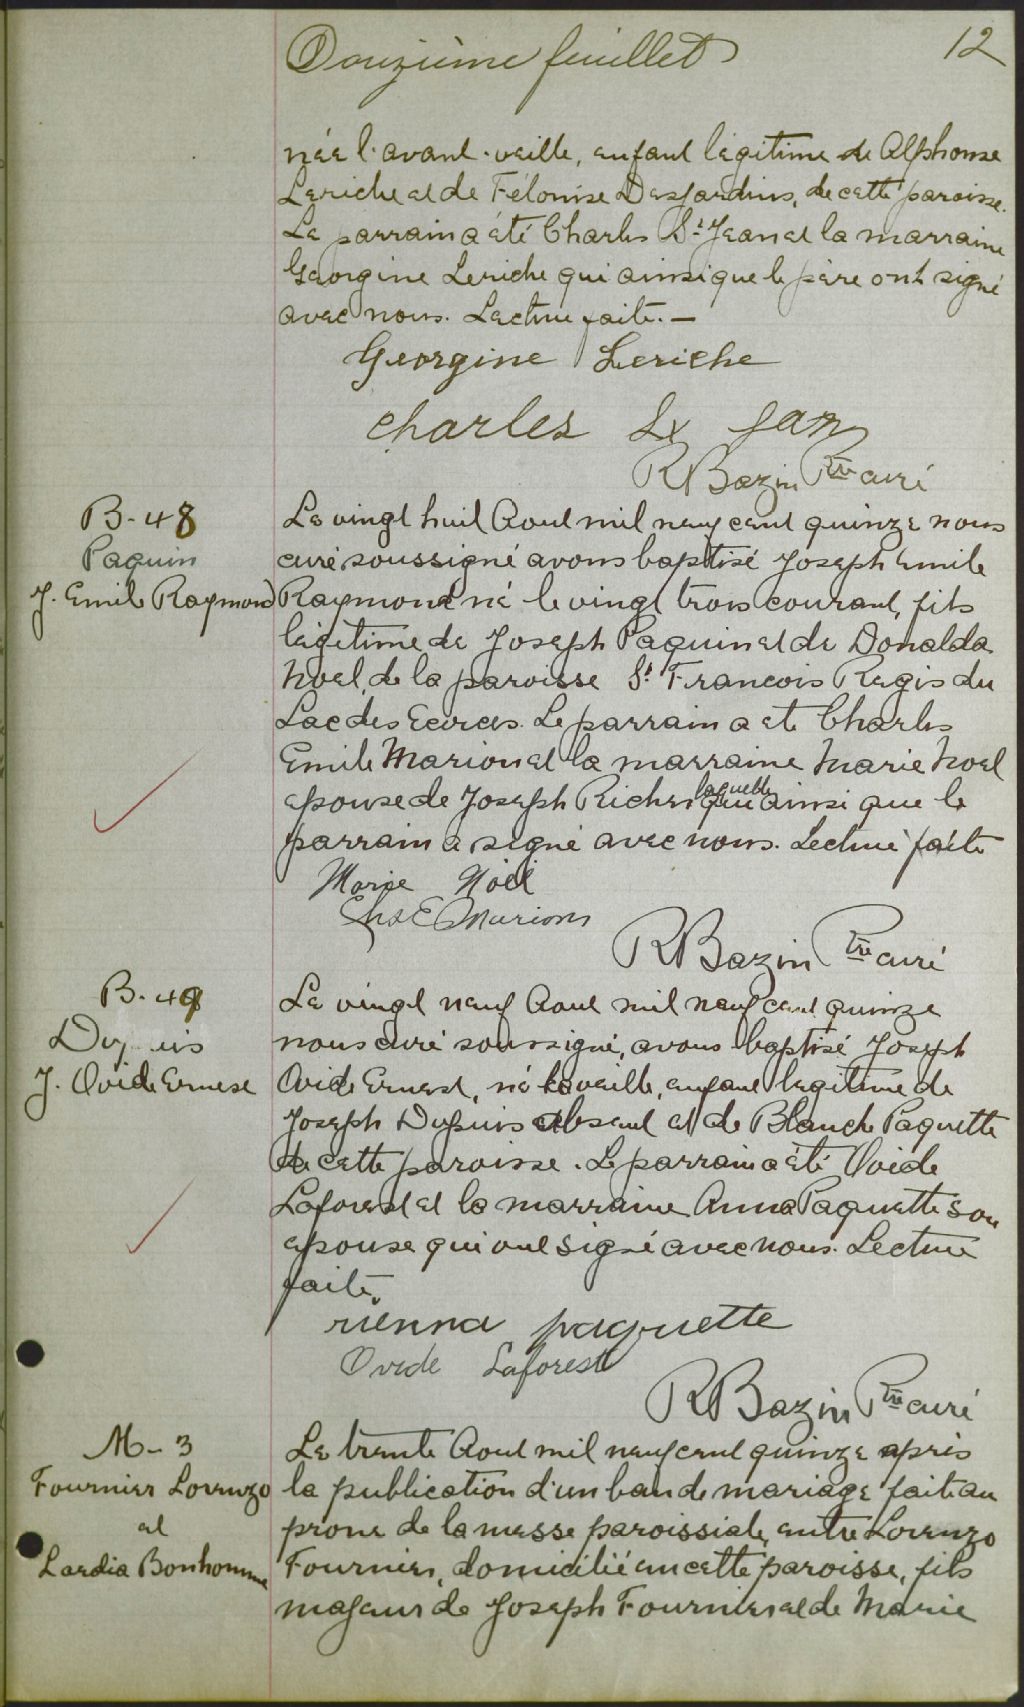 Douzième feuillet 12
née l'avant-veille, enfant légitime de Alphonse
Leriche et de Félonise Desjardins, de cette paroisse.
Le parrain a été Charles St Jean et la marraine
Georgine Leriche qui ainsi que le père ont signé
avec nous. Lecture faite. —
Georgine Leriche
Charles St Jan
R Bazin Ptre curé
B-48
Paquin
J. Emile Raymond
Le vingt huit Aout mil neuf cent quinze nous
curé soussigné avons baptisé Joseph Emile
Raymond né le vingt trois courant, fils
légitime de Joseph Paquin et de Donalda
Noel, de la paroisse St Francois Regis du
Lac des Ecorces. Le parrain a ete Charles
Emile Marion et la marraine Marie Noel
epouse de Joseph Richer laquelle qui ainsi que le
parrain a signé avec nous. Lecture faite
Marie Noël
Chs E Marion
R Bazin Ptre curé
B-49
Dupuis
J. Ovide Ernest
Le vingt neuf Aout mil neuf cent quinze
nous curé soussigné, avons baptisé Joseph
Ovide Ernest, né la veille, enfant legitime de
Joseph Dupuis absent et de Blanche Paquette
de cette paroisse. Le parrain a été Ovide
Laforest et la marraine Anna Paquette son
epouse qui ont signé avec nous. Lecture
faite.
rienna paquette
Ovide Laforest
R Bazin Ptre curé
M-3
Fournier Lorenzo
et
Laedia Bonhomme
Le trente Aout mil neuf cent quinze après
la publication d'un ban de mariage faite au
prone de la messe paroissiale, entre Lorenzo
Fournier, domicilié en cette paroisse, fils
majeur de Joseph Fournier et de Marie